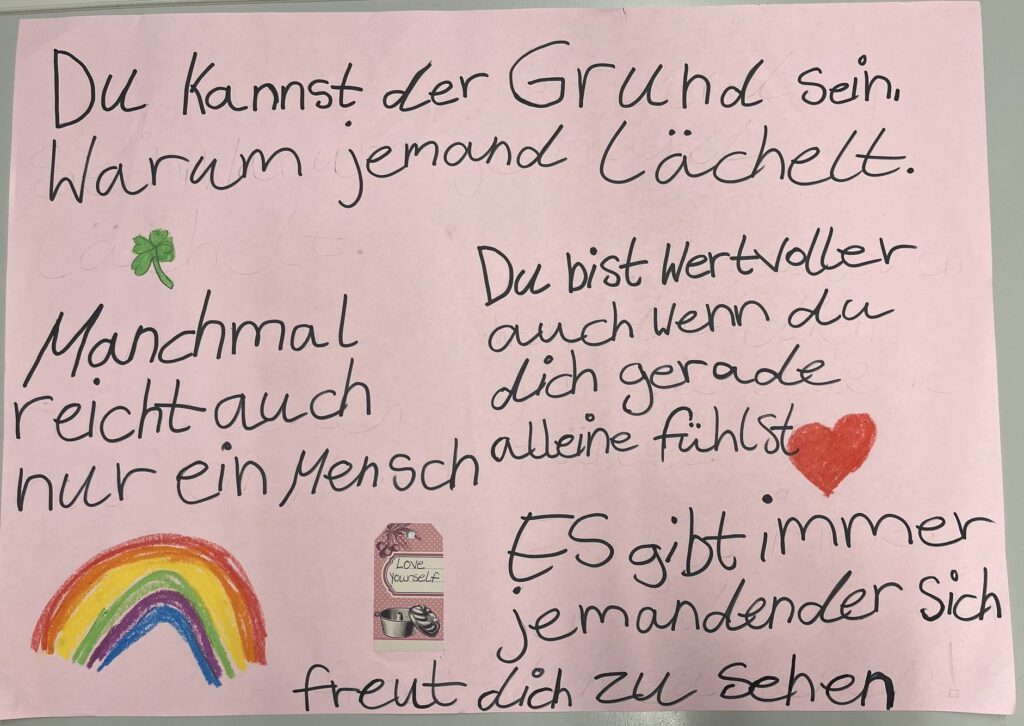 Du kannst der Grund sein.
Warum jemand Lächelt.
Manchmal
reicht auch
nur ein Mensch
Du bist Wertvoller
auch wenn du
dich gerade
alleine fühlst
Love
yourself
ES gibt immer
jemandender sich
freut dich zu sehen